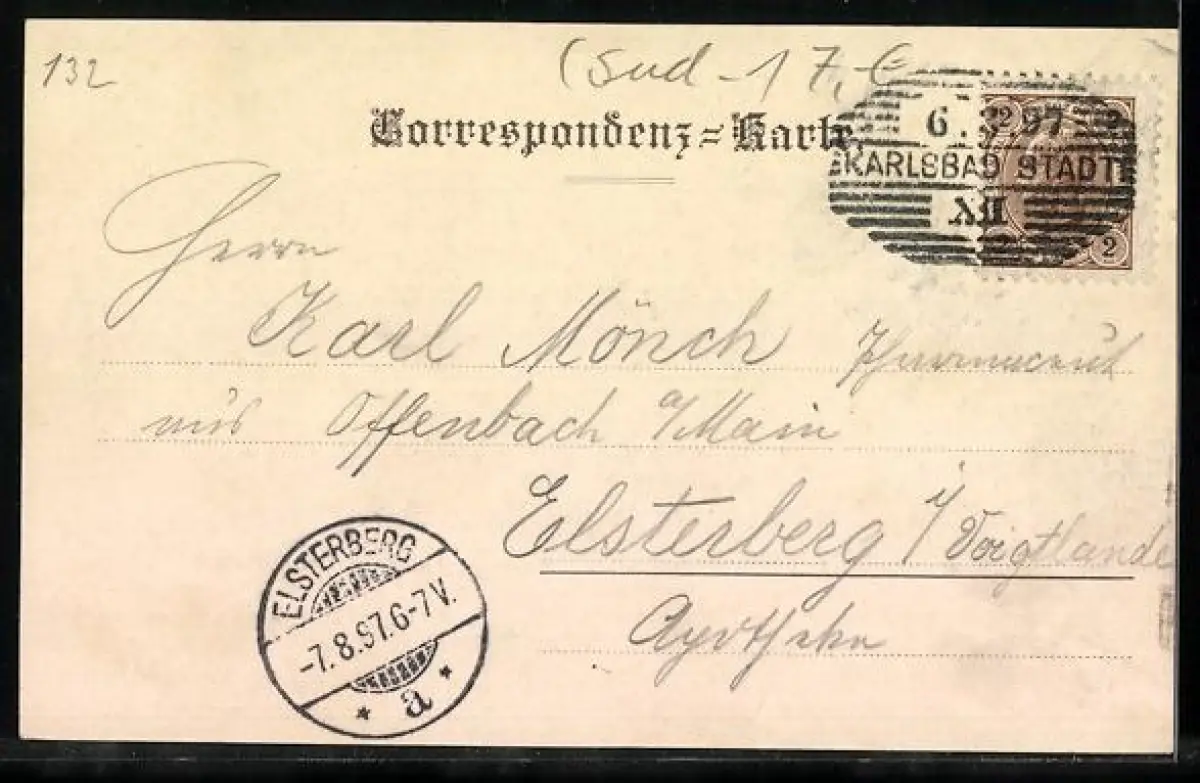 132
(Sud - 17,-
Correspondenz=Karte.
6. .97
KARLSBAD STADT
XII
2 2
2
Herrn
Karl Mönch Pharmaceut
aus Offenbach a/Main
Elsterberg i/Voigtlande
Apotheke
ELSTERBERG
-7.8.97.6-7V.
* a *